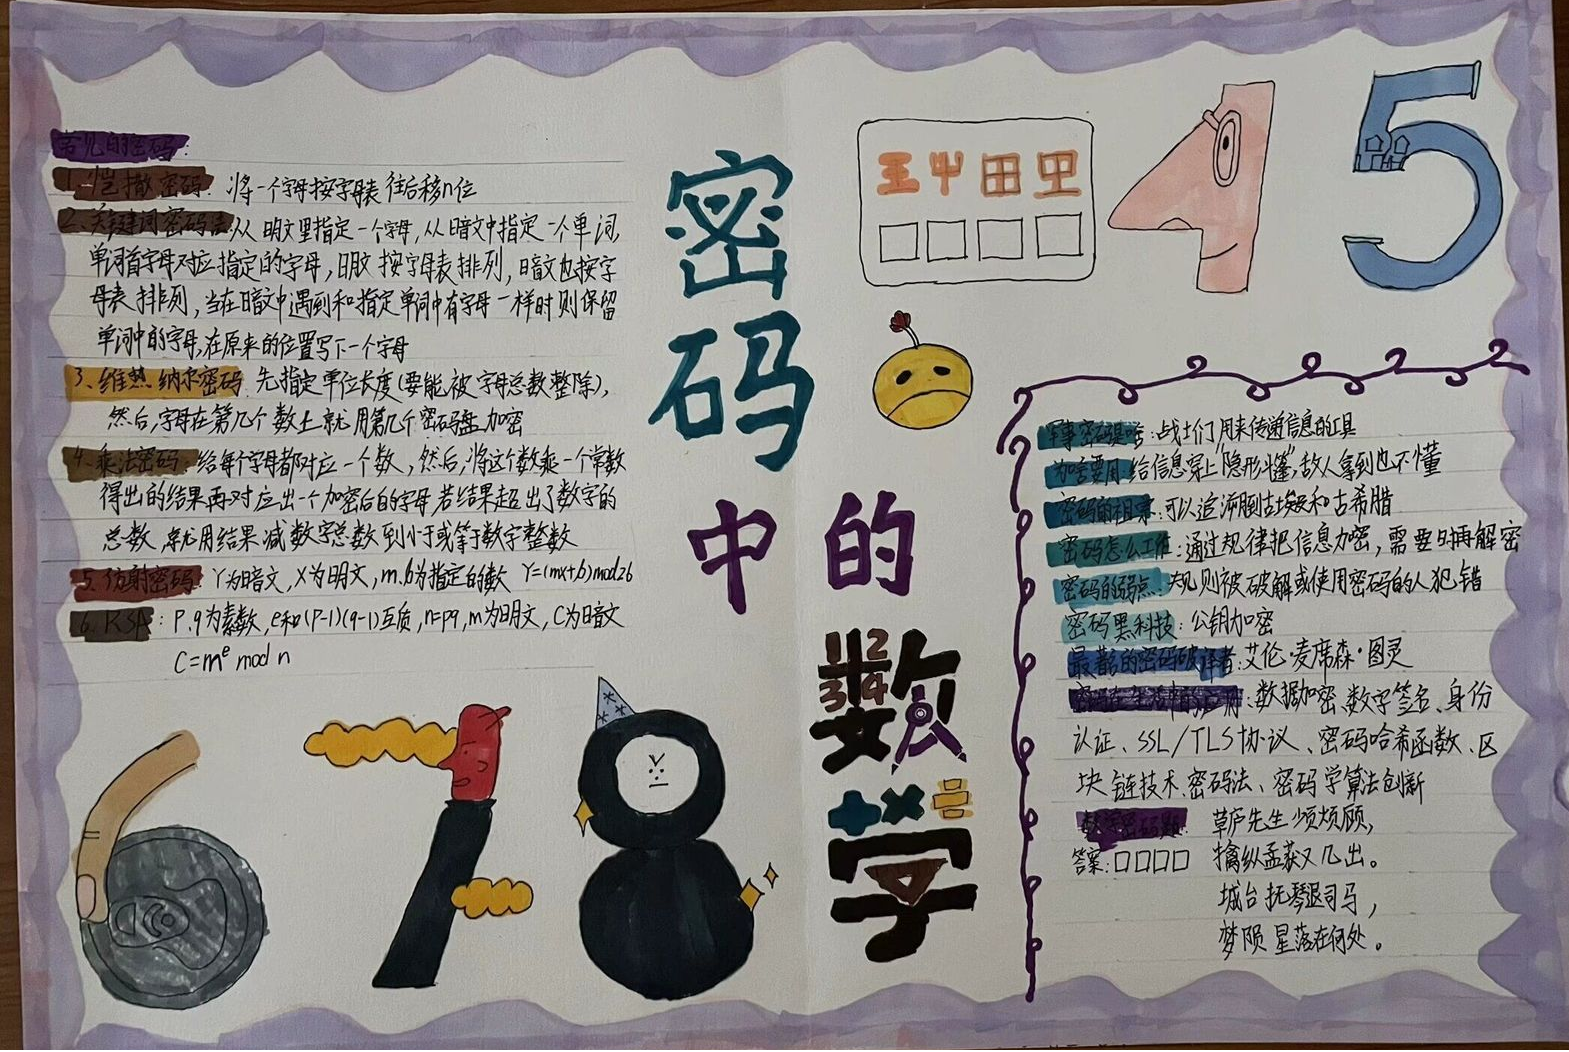 常见的密码:
1.恺撒密码: 将一个字母按字母表往后移n位
2.关键词密码法:从明文里指定一个字母,从暗文中指定一个单词,
单词首字母对应指定的字母,明文按字母表排列,暗文也按字
母表排列,当在暗文中遇到和指定单词中有字母一样时则保留
单词中的字母,在原来的位置写下一个字母
3、维热纳尔密码:先指定单位长度(要能被字母总数整除),
然后,字母在第几个数上就用第几个密码盘加密
4、乘法密码:给每个字母都对应一个数,然后,将这个数乘一个常数
得出的结果再对应出一个加密后的字母,若结果超出了数字的
总数,就用结果减数字总数到小于或等于数字整数
5.仿射密码:Y为暗文,X为明文,m.b为指定的数 Y=(mx+b)mod26
6.RSA:P.q为素数,e和(P-1)(q-1)互质,n=pq,m为明文,C为暗文
C=mᵉ mod n
密码中的数学
1 2
3 4
田
4
5
6
7
8
军事密码是啥:战士们用来传递信息的工具
加密要用:给信息穿上“隐形斗篷”,敌人拿到也不懂
密码的祖宗:可以追溯到古埃及和古希腊
密码怎么工作:通过规律把信息加密,需要时再解密
密码的弱点:规则被破解或使用密码的人犯错
密码黑科技:公钥加密
最著名的密码破译者:艾伦·麦席森·图灵
密码在生活中的应用:数据加密、数字签名、身份
认证、SSL/TLS协议、密码哈希函数、区
块链技术、密码法、密码学算法创新
数字密码题: 草庐先生须烦顾,
答案:□□□□ 擒纵孟获又几出。
城台抚琴退司马,
梦陨星落在何处。